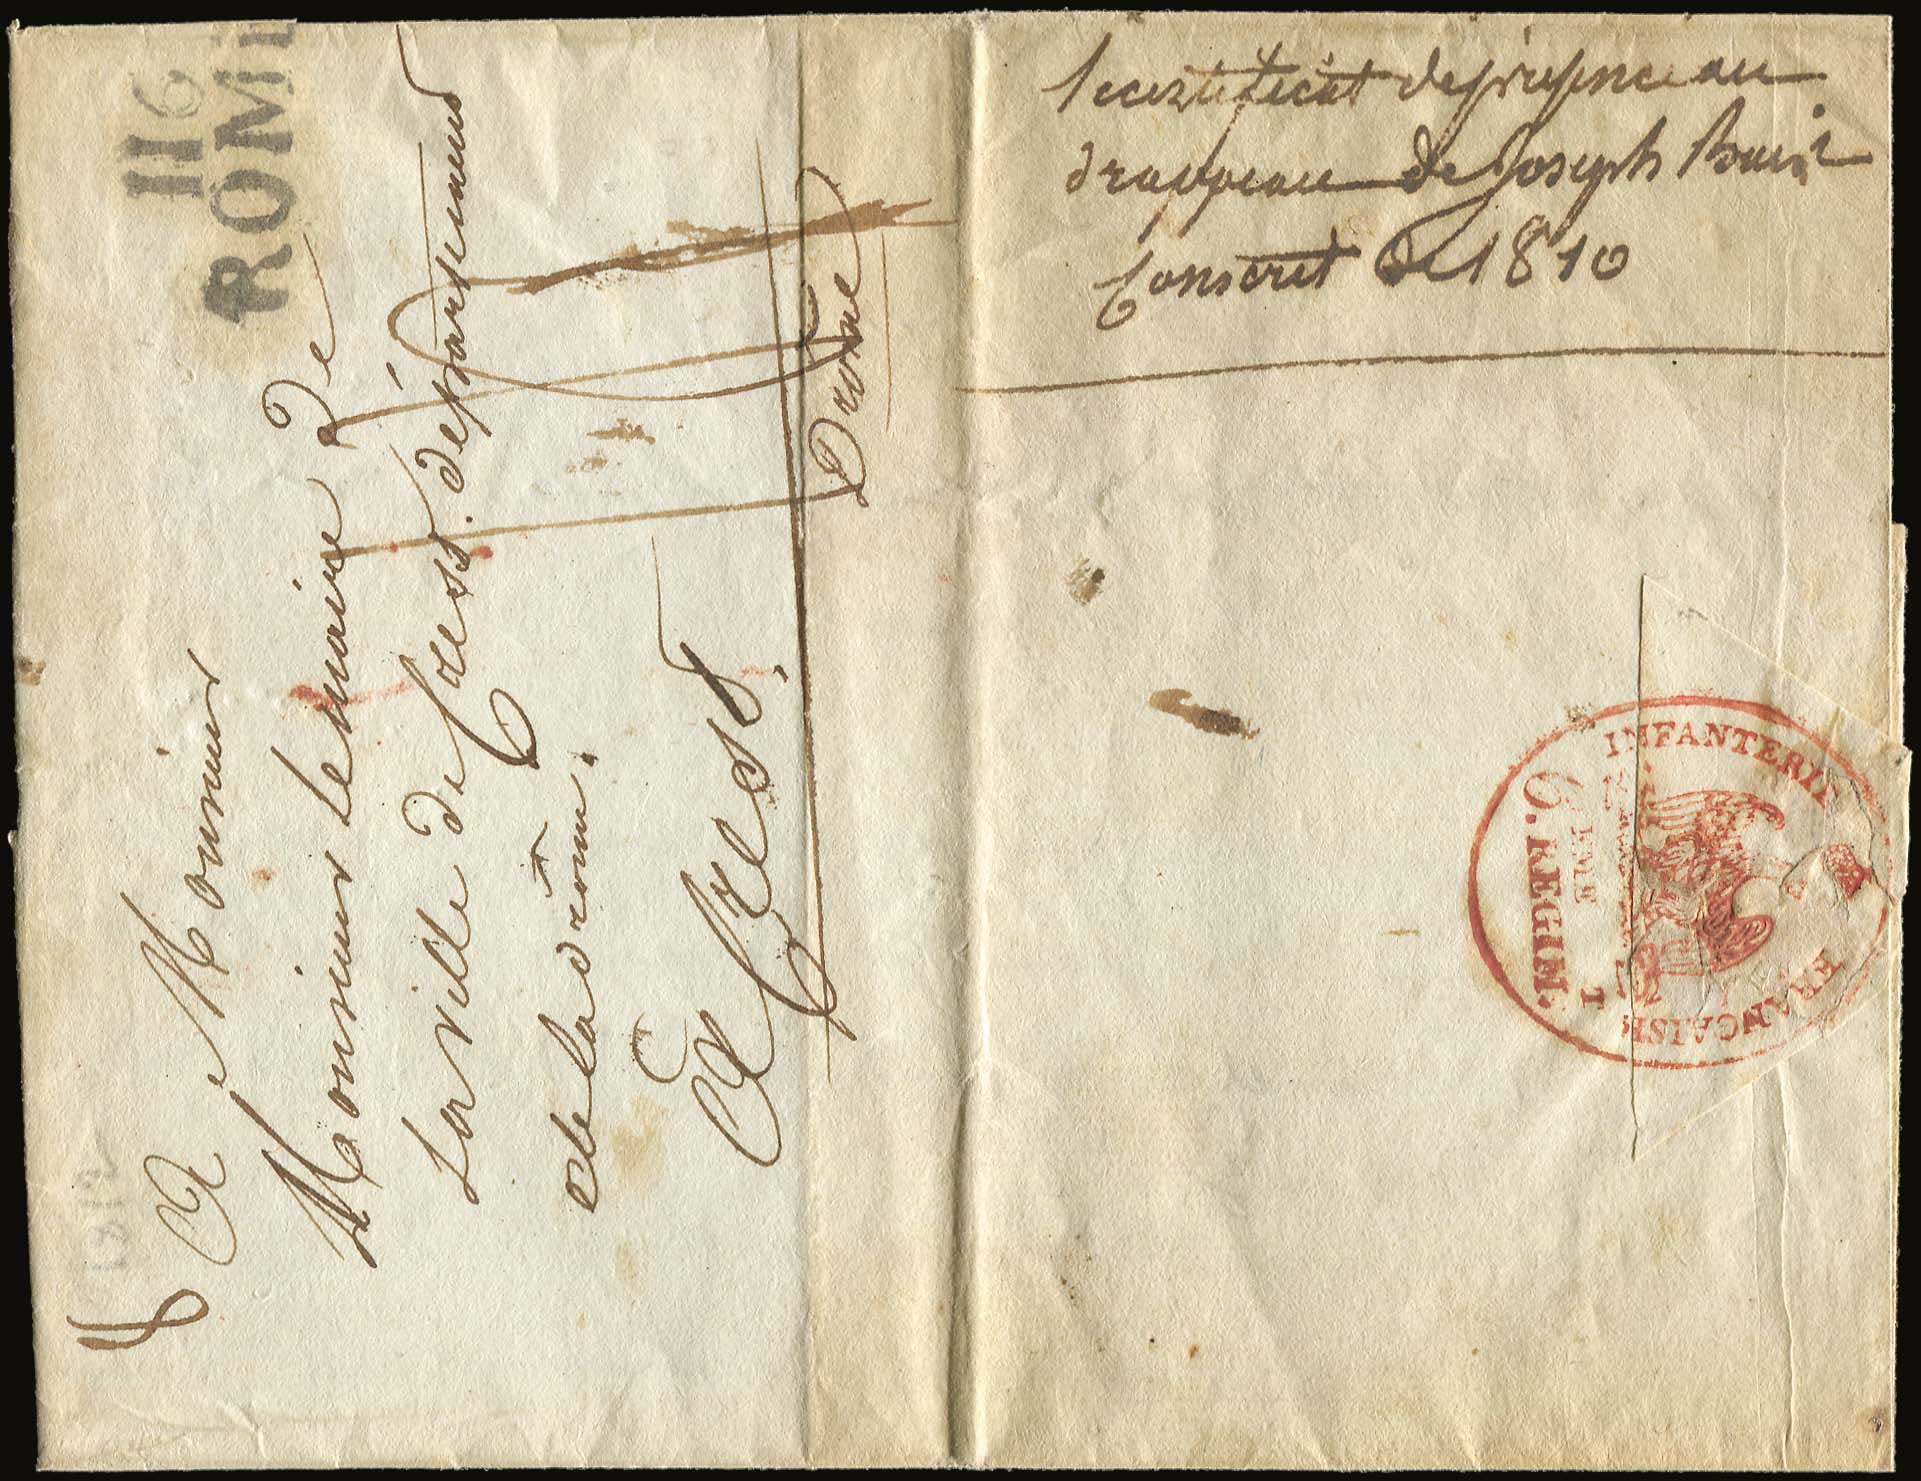 116
ROME
A Monsieur
Monsieur le maire De
La ville de Crest. département
de la drôme.
A Crest.
Drome
le certificat de présence au
drappeau de Joseph
Conscrit de 1810
INFANTERIE FRANÇAISE
6. REGIM.T
EME